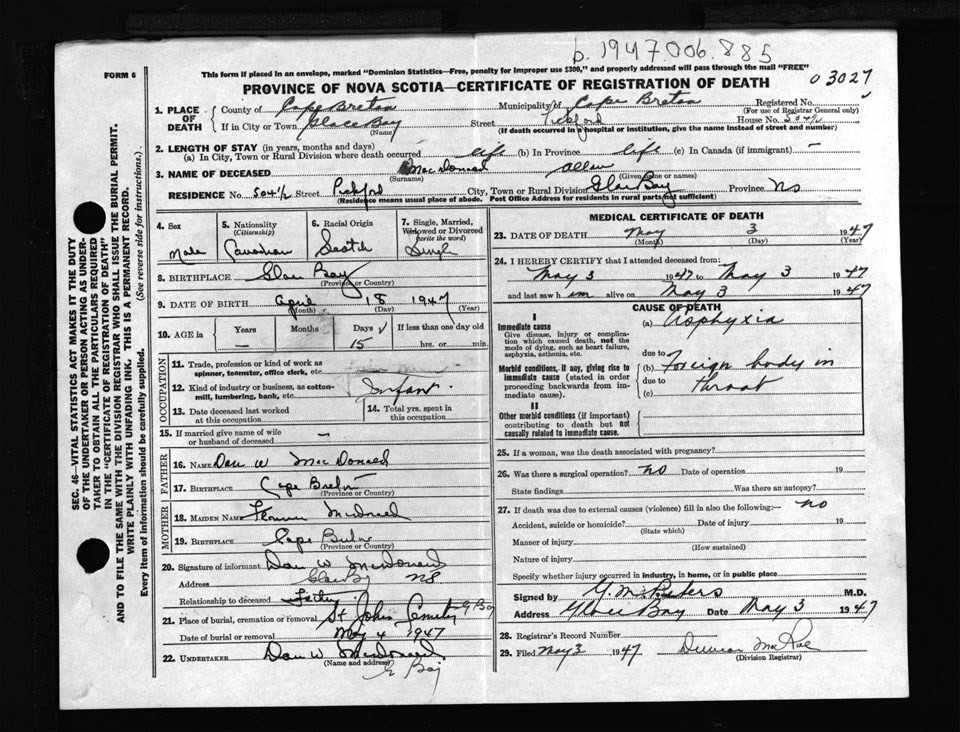 b. 1947 006.885
FORM 6
This form if placed in an envelope, marked "Dominion Statistics—Free, penalty for improper use $300," and properly addressed will pass through the mail "FREE"
PROVINCE OF NOVA SCOTIA—CERTIFICATE OF REGISTRATION OF DEATH
03027
1. PLACE OF DEATH
County of Cape Breton Municipality of Cape Breton Registered No.
(For use of Registrar General only)
If in City or Town Glace Bay Street Pickford House No. 504 1/2
(Name) (If death occurred in a hospital or institution, give the name instead of street and number)
2. LENGTH OF STAY (in years, months and days)
(a) In City, Town or Rural Division where death occurred life (b) In Province life (c) In Canada (if immigrant) —
3. NAME OF DECEASED MacDonald Allan
(Surname) (Given name or names)
RESIDENCE No. 504 1/2 Street Pickford City, Town or Rural Division Glace Bay Province NS
(Residence means usual place of abode. Post Office Address for residents in rural parts not sufficient)
4. Sex 5. Nationality (Citizenship) 6. Racial Origin 7. Single, Married, Widowed or Divorced (write the word)
Male Canadian Scotch Single
8. BIRTHPLACE Glace Bay
(Province or Country)
9. DATE OF BIRTH April 18 1947
(Month) (Day) (Year)
10. AGE in Years Months Days If less than one day old
— 15 hrs. or min.
OCCUPATION
11. Trade, profession or kind of work as spinner, teamster, office clerk, etc.
12. Kind of industry or business, as cotton-mill, lumbering, bank, etc. Infant.
13. Date deceased last worked at this occupation
14. Total yrs. spent in this occupation
15. If married give name of wife or husband of deceased —
FATHER
16. NAME Dan W MacDonald
17. BIRTHPLACE Cape Breton
(Province or Country)
MOTHER
18. MAIDEN NAME McDonald
19. BIRTHPLACE Cape Breton
(Province or Country)
20. Signature of informant Dan W McDonald
Address Glace Bay NS
Relationship to deceased Father
21. Place of burial, cremation or removal St Johns Cemetery G Bay
Date of burial or removal May 4 1947
22. UNDERTAKER Dan W McDonald
(Name and address)
G Bay
MEDICAL CERTIFICATE OF DEATH
23. DATE OF DEATH May 3 1947
(Month) (Day) (Year)
24. I HEREBY CERTIFY that I attended deceased from:
May 3 1947 to May 3 1947
and last saw him alive on May 3 1947
CAUSE OF DEATH
I
Immediate cause
Give disease, injury or complication which caused death, not the mode of dying, such as heart failure, asphyxia, asthenia, etc.
(a) Asphyxia
due to
Morbid conditions, if any, giving rise to immediate cause (stated in order proceeding backwards from immediate cause).
(b) Foreign body in
due to throat
(c)
II
Other morbid conditions (if important) contributing to death but not causally related to immediate cause.
25. If a woman, was the death associated with pregnancy?
26. Was there a surgical operation? no Date of operation 19
State findings Was there an autopsy?
27. If death was due to external causes (violence) fill in also the following:— no
Accident, suicide or homicide? Date of injury 19
(State which)
Manner of injury
(How sustained)
Nature of injury
Specify whether injury occurred in industry, in home, or in public place
Signed by M.D.
Address Glace Bay Date May 3 1947
28. Registrar's Record Number
29. Filed May 3 1947 Duncan MacRae
(Division Registrar)
SEC. 46—VITAL STATISTICS ACT MAKES IT THE DUTY OF THE UNDERTAKER OR PERSON ACTING AS UNDERTAKER TO OBTAIN ALL THE PARTICULARS REQUIRED IN THE "CERTIFICATE OF REGISTRATION OF DEATH" AND TO FILE THE SAME WITH THE DIVISION REGISTRAR WHO SHALL ISSUE THE BURIAL PERMIT.
WRITE PLAINLY WITH UNFADING INK. THIS IS A PERMANENT RECORD.
Every item of information should be carefully supplied. (See reverse side for instructions.)